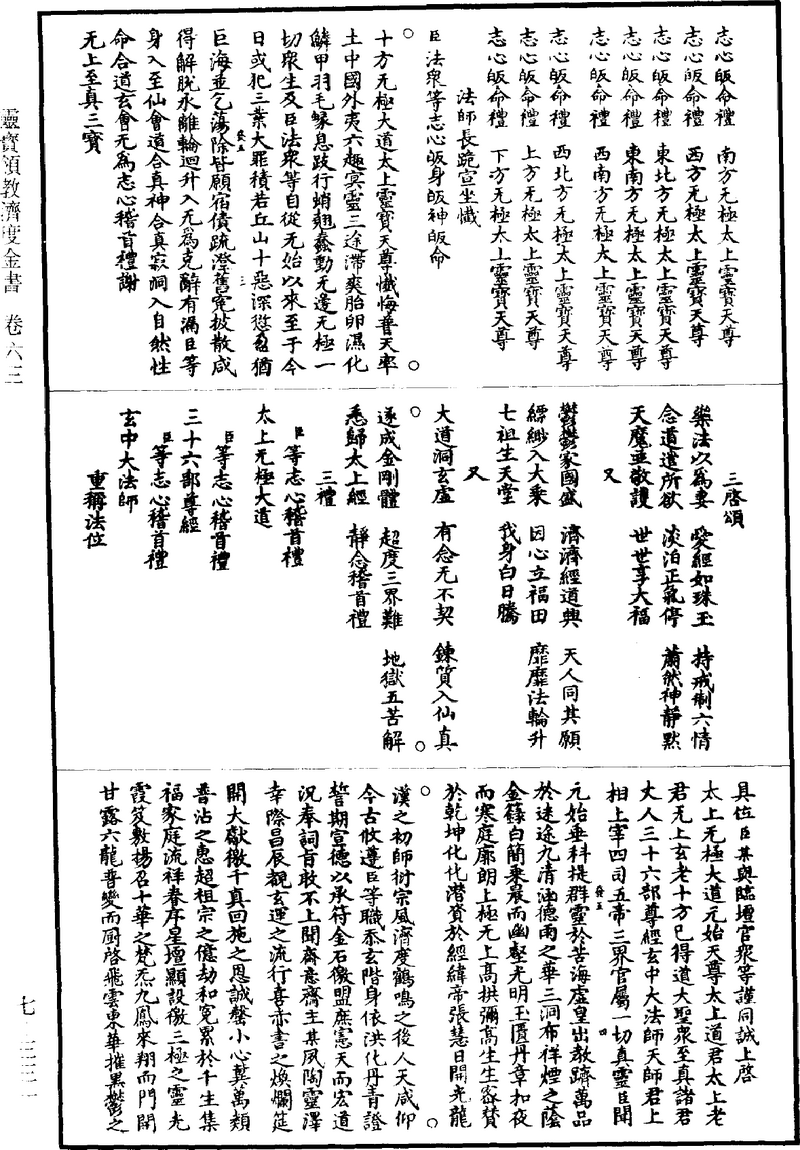 志心皈命禮　南方无極太上靈寶天尊
志心皈命禮　西方无極太上靈寶天尊
志心皈命禮　東北方无極太上靈寶天尊
志心皈命禮　東南方无極太上靈寶天尊
志心皈命禮　西南方无極太上靈寶天尊
志心皈命禮　西北方无極太上靈寶天尊
志心皈命禮　上方无極太上靈寶天尊
志心皈命禮　下方无極太上靈寶天尊
法師長跪宣坐懺
臣法衆等志心皈身皈神皈命
十方无極大道太上靈寶天尊懺悔普天率
土中國外夷六趣冥靈三途滯爽胎卵濕化
鱗甲羽毛緣息跂行蜎翹蠢動无邊无極一
切衆生及臣法衆等自從无始以來至于今
日或犯三業大罪積若丘山十惡深愆猶
巨海並乞蕩除皆願宿債疏澄舊寃披散咸
得解脫永離輪迴升入无爲克辭有漏臣等
身入至仙會道合真神合真寂洞入自然性
命合道玄會无為志心稽首禮謝
无上至真三寶
三啓頌
樂法以為妻　愛經如珠玉　持戒制六情
念道遣所欲　淡泊正氣停　蕭然神靜默
天魔並敬護　世世享大福
又
鬱鬱家國盛　濟濟經道興　天人同其願
縹緲入大乘　因心立福田　靡靡法輪升
七祖生天堂　我身白日騰
又
大道洞玄虛　有念无不契　鍊質入仙真
遂成金剛體　超度三界難　地獄五苦解
悉歸太上經　靜念稽首禮
三禮
臣等志心稽首禮
太上无極大道
臣等志心稽首禮
三十六部尊經
臣等志心稽首禮
玄中大法師
重稱法位
具位臣某與臨壇官衆等謹同誠上啓
太上无極大道元始天尊太上道君太上老
君无上玄老十方已得道大聖衆至真諸君
丈人三十六部尊經玄中大法師天師君上
相上宰四司五帝三界官屬一切真靈臣聞
元始垂科提群靈於苦海虛皇出教躋萬品
於迷途九清涵德雨之華三洞布祥煙之蔭
金籙白簡乘晨而幽壑光明玉匱丹章和夜
而寒庭廓朗上極无上高拱彌高生生容贊
於乾坤化化潛資於經緯帝張慧日開光龍
漢之初師衍宗風濟度鶴鳴之後人天咸仰
今古攸遵臣等職忝玄階身依洪化丹青證
誓期宣德以承符金石徵盟庶憲天而宏道
況奉詞旨敢不上聞齋意齋主某夙陶靈澤
幸際昌辰觀玄運之流行喜赤書之煥爛筵
開大獻徼千真回施之恩誠罄小心冀萬類
普沾之惠超祖宗之億劫和寃累於千生集
福家庭流祥眷序星壇顯設徼三極之靈光
霞笈敷揚召十華之梵炁九鳳來翔而門開
甘露六龍普變而厨啓飛雲東華摧黑鬱之
靈寶領教濟度金書　卷六三